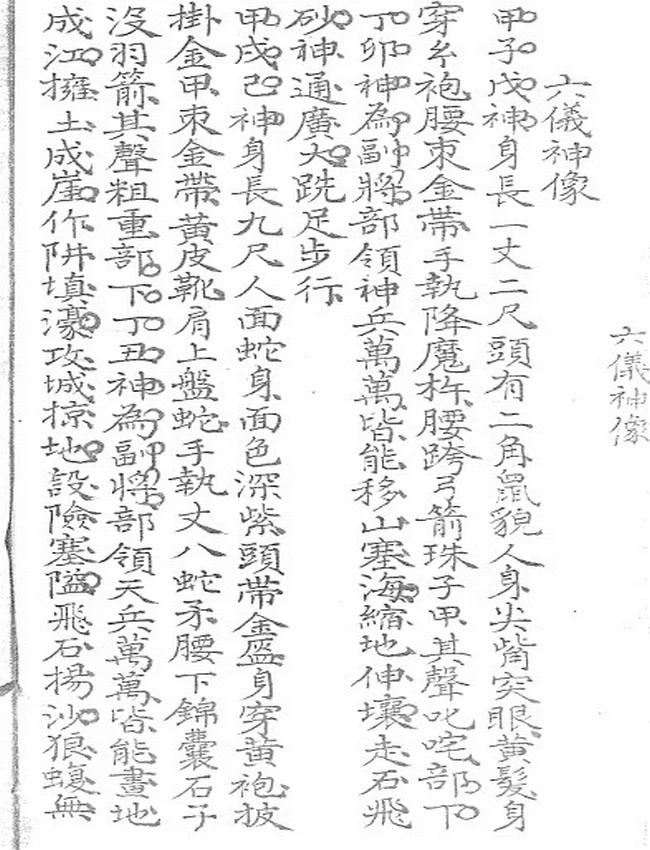 六儀神像
六儀神像
甲子戊神身長一丈二尺頭有二角鼠貌人身尖觜突眼黃髮身
穿糸袍腰束金帶手執降魔杵腰跨弓箭珠子甲其聲叱咤部下
丁卯神為副將部領神兵萬萬皆能移山塞海縮地伸壤走石飛
砂神通廣大跣足步行
甲戌己神身長九尺人面蛇身面色深紫頭帶金盔身穿黃袍披
掛金甲束金帶黃皮靴肩上盤蛇手執丈八蛇矛腰下錦囊石子
沒羽箭其聲粗重部下丁丑神為副將部領天兵萬萬皆能畫地
成江擁土成崖作阱填濠攻城掠地設險塞隘飛石揚沙狼蝮無